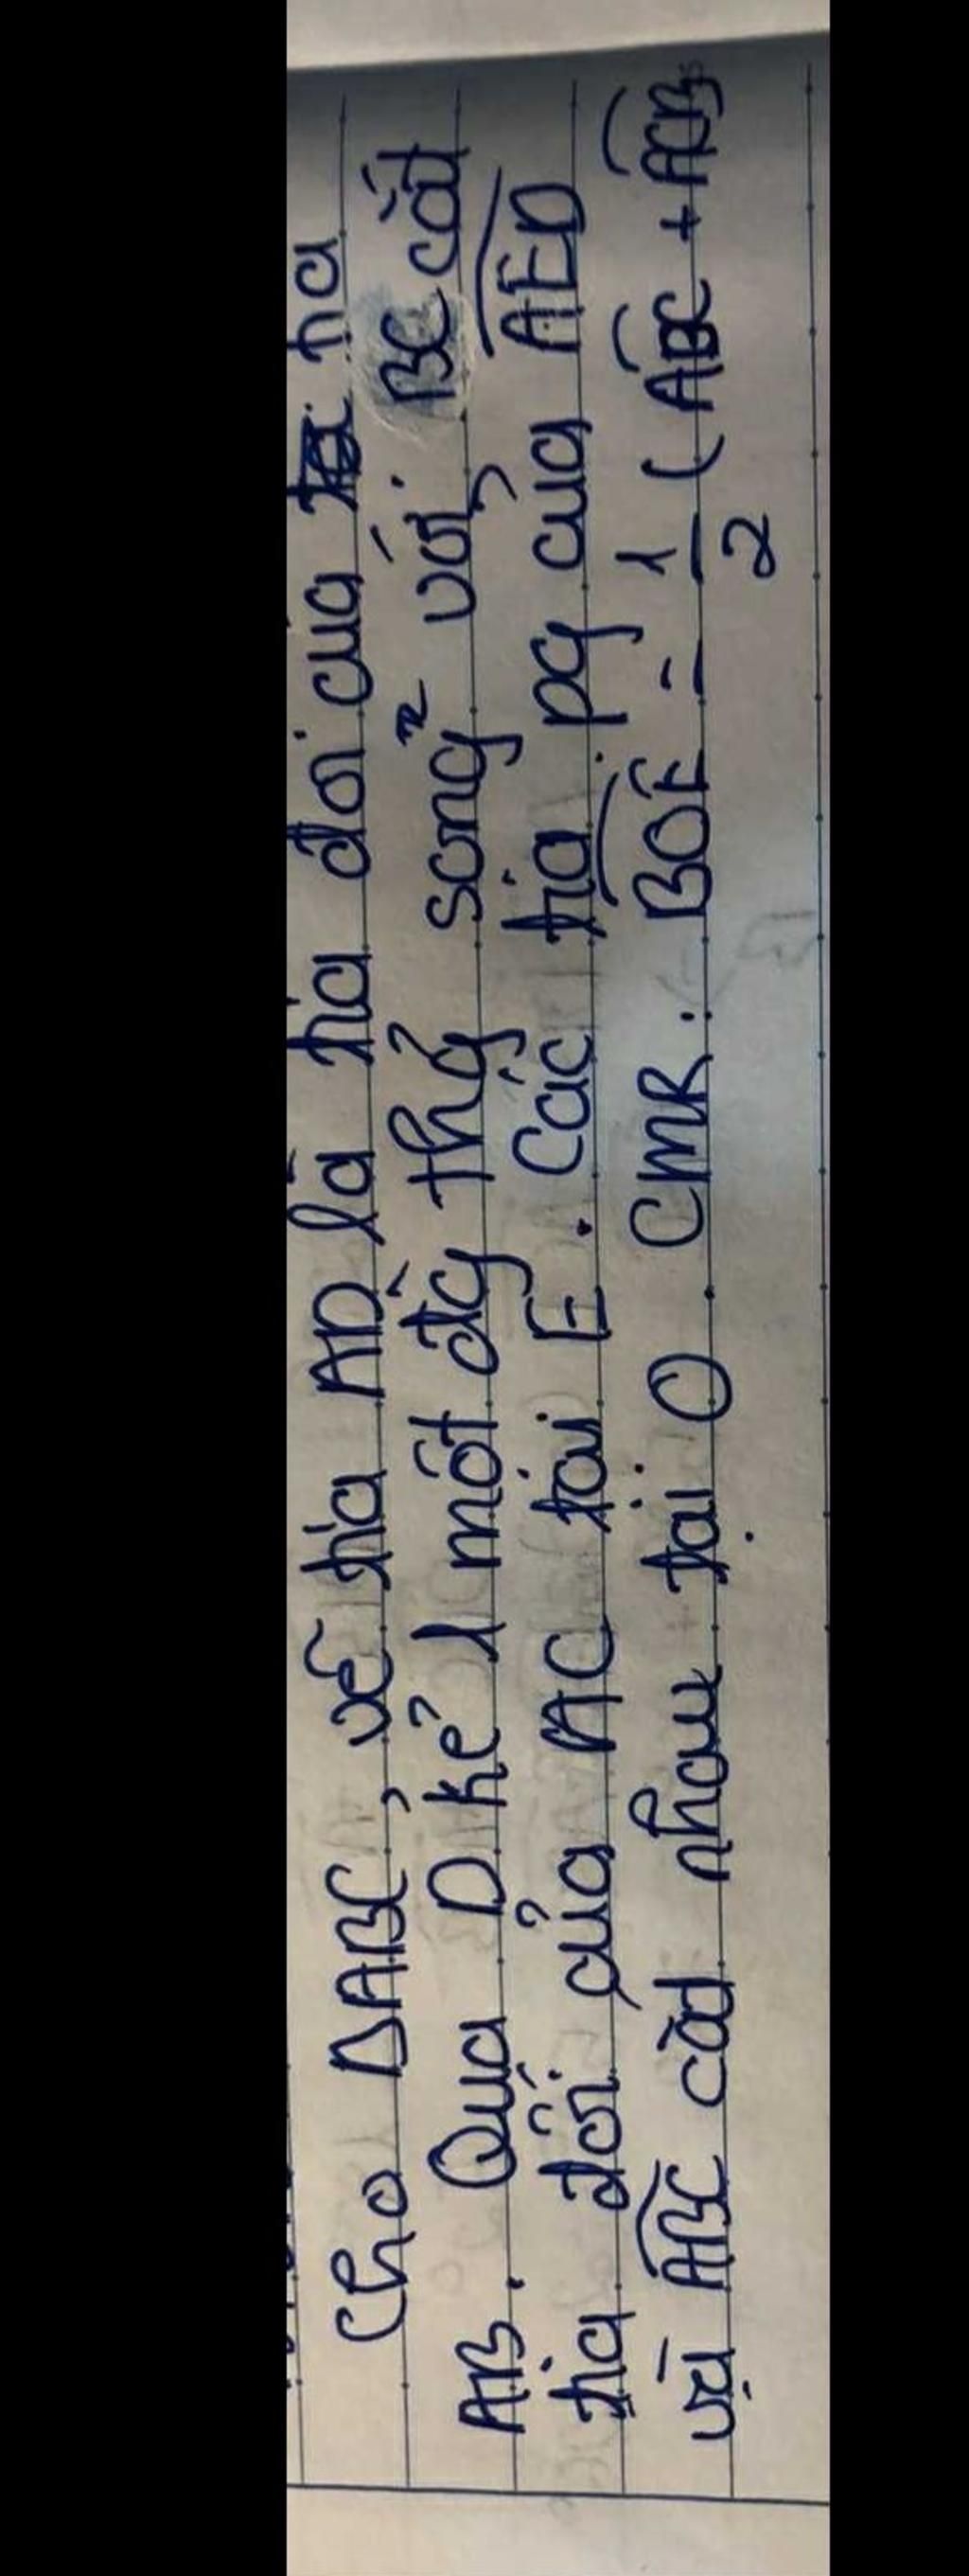 Cho ΔABC, vẽ tia AD là tia đối của tia
AB. Qua D kẻ 1 một đg thg song² với BC cắt
tia đối của AC tại E. Các tia pg của AED
và ABC cắt nhau tại O. CMR: BOE = 1/2 (ABC + ACB